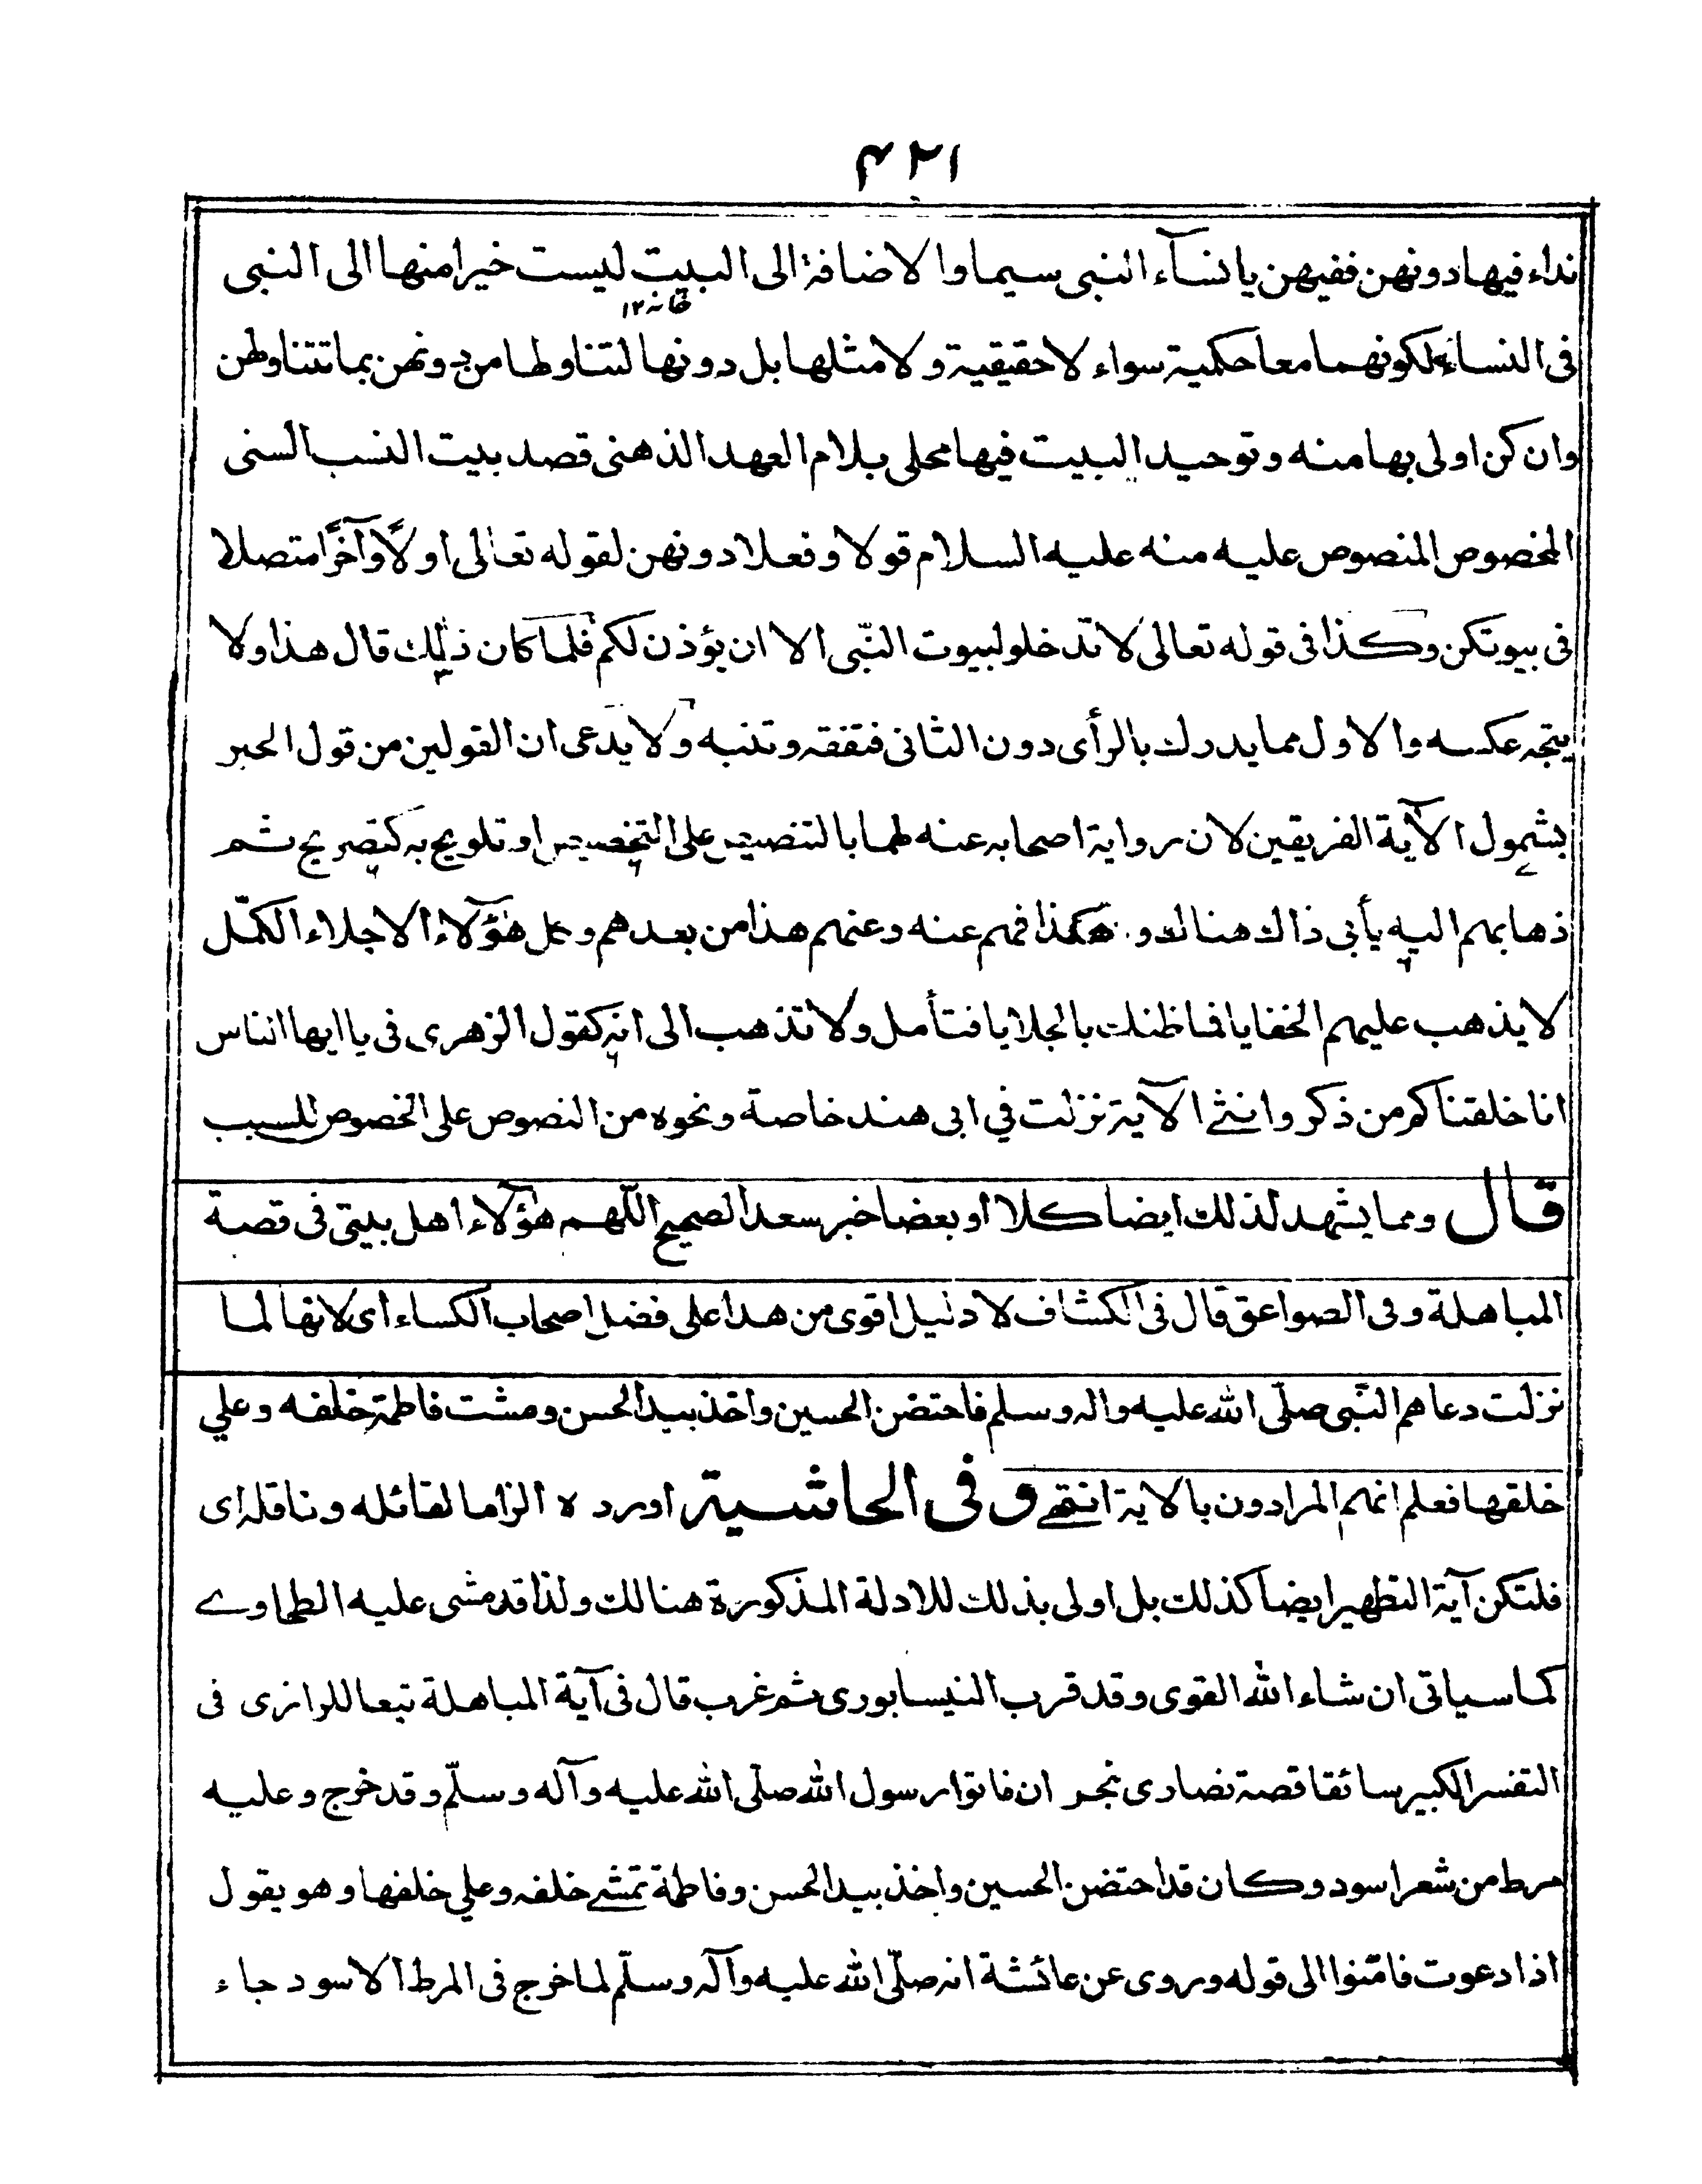 ٤٢١
نداء فيها دونهن ففيهن يا نسآء النبى سيما والاضافة الى البيت ليست خيرا منها الى النبى
فى النساء لكونهما معا حكمية سواء لا حقيقية ولا مثلها بل دونها لتناولها من دونهن بما تتناولهن
وان كن اولى بها منه وتوحيد البيت فيها محلى بلام العهد الذهنى قصد بيت النسب السنى
المخصوص المنصوص عليه منه عليه السلام قولا وفعلا دونهن لقوله تعالى اولًا وآخرًا متصلا
فى بيوتكن وكذا فى قوله تعالى لا تدخلوا بيوت النّبى الا ان يؤذن لكم فلما كان ذلك قال هذا ولا
يتجه عكسه والاول مما يدرك بالرأى دون الثانى فتفقه وتنبه ولا يدعى ان القولين من قول الحبر
بشمول الآية الفريقين لان رواية اصحابه عنه لهما بالتنصيص على التخصيص او تلويح به كتصريح ثم
ذهابهم اليه يأبى ذاك هنالك و هكذا فهم عنه وعنهم هذا من بعدهم وعلى هؤلآء الاجلاء الكمّل
لا يذهب عليهم الخفايا فما ظنك بالجلايا فتأمل ولا تذهب الى انه كقول الزهرى فى يا ايها الناس
انا خلقناكم من ذكر وانثے الآية نزلت في ابى هند خاصة ونحوه من النصوص على الخصوص للسبب
قال ومما يشهد لذلك ايضا كلا او بعضا خبر سعد الصحيح اللّهم هؤلآء اهل بيتى فى قصة
المباهلة وفى الصواعق قال فى الكشاف لا دليل اقوى من هذا على فضل اصحاب الكساء اى لانها لما
نزلت دعاهم النّبى صلّى الله عليه واله وسلم فاحتضن الحسين واخذ بيد الحسن ومشت فاطمة خلفه وعلي
خلفها فعلم انهم المرادون بالاية انتهے وفى الحاشية اورده الزاما لقائله وناقله اى
فلتكن آية التطهير ايضا كذلك بل اولى بذلك للادلة المذكورة هنالك ولذا قد مشى عليه الطحاوے
كما سياتى ان شاء الله القوى وقد قرب النيسابورى ثم غرب قال فى آية المباهلة تبعا للرازى فى
التفسر الكبير سائقا قصة نصارى نجران فاتوا رسول الله صلّى الله عليه وآله وسلّم وقد خرج وعليه
مرط من شعر اسود وكان قد احتضن الحسين واخذ بيد الحسن وفاطمة تمشے خلفه وعلي خلفها وهو يقول
اذا دعوت فامّنوا الى قوله وروى عن عائشة انه صلّى الله عليه وآله وسلّم لما خرج فى المرط الاسود جاء